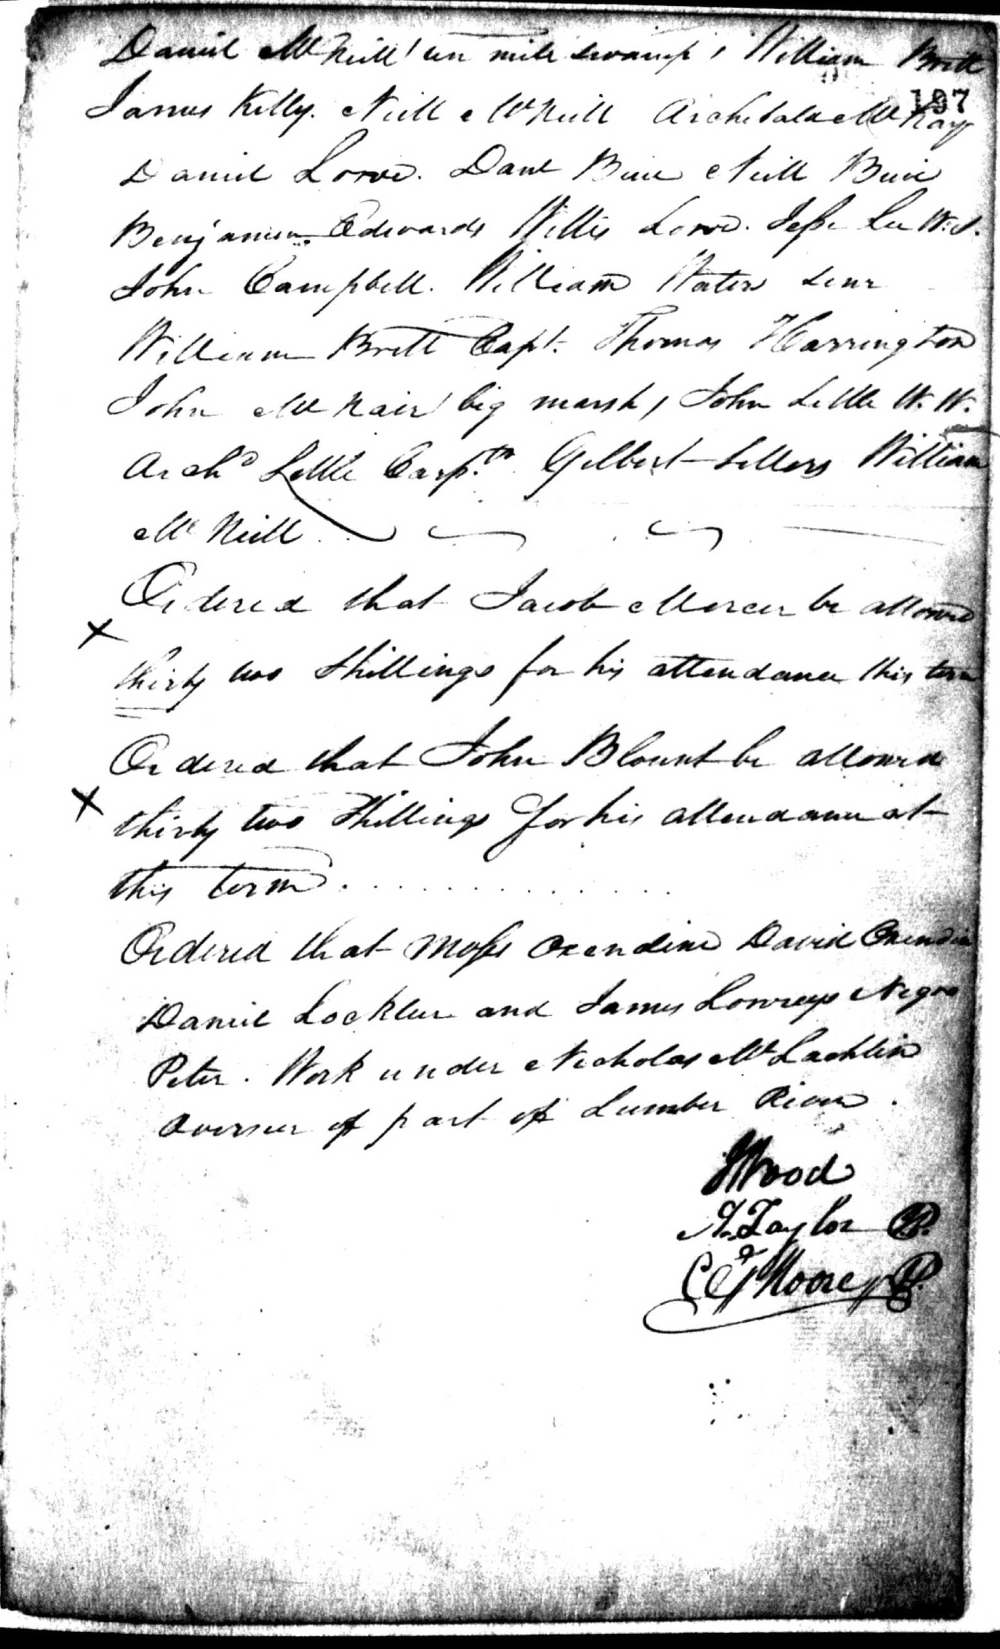 Daniel McNeill (ten mile swamp) William Britt
197
James Kelly. Neill McNeill Archibald McKay
Daniel Lowe. Danl Buie Neill Buie
Benjamin Edwards Willis Lowe. Jesse Lee W.S.
John Campbell. William Waters Senr
William Britt Capt. Thomas Harrington
John McNair (big marsh) John Little W.W.
Archd Little Carptr Gilbert Sellers William
McNeill
Ordered that Jacob Mercer be allowed
X
thirty two Shillings for his attendance this term
Ordered that John Blount be allowed
X
thirty two Shillings for his attendance at
this term.
Ordered that Moses Oxendine David Oxendine
Daniel Lockleer and James Lowreys Negro
Peter. Work under Nicholas McLachlin
Overseer of part of Lumber River.
JWood
A. Taylor JP.